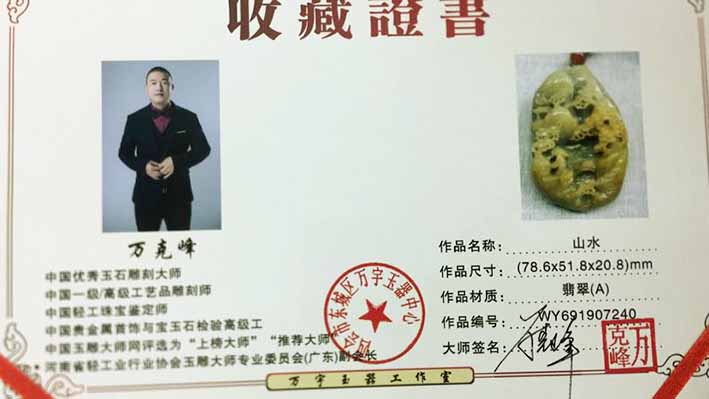 收藏證書
万克峰
中国优秀玉石雕刻大师
中国一级/高级工艺品雕刻师
中国轻工珠宝鉴定师
中国贵金属首饰与宝玉石检验高级工
中国玉雕大师网评选为“上榜大师”“推荐大师”
河南省轻工业行业协会玉雕大师专业委员会(广东)副会长
作品名称: 山水
作品尺寸: (78.6x51.8x20.8)mm
作品材质: 翡翠(A)
作品编号: WY691907240
大师签名: 万克峰
万克峰
会市东城区万宇玉器中心
万宇玉器工作室